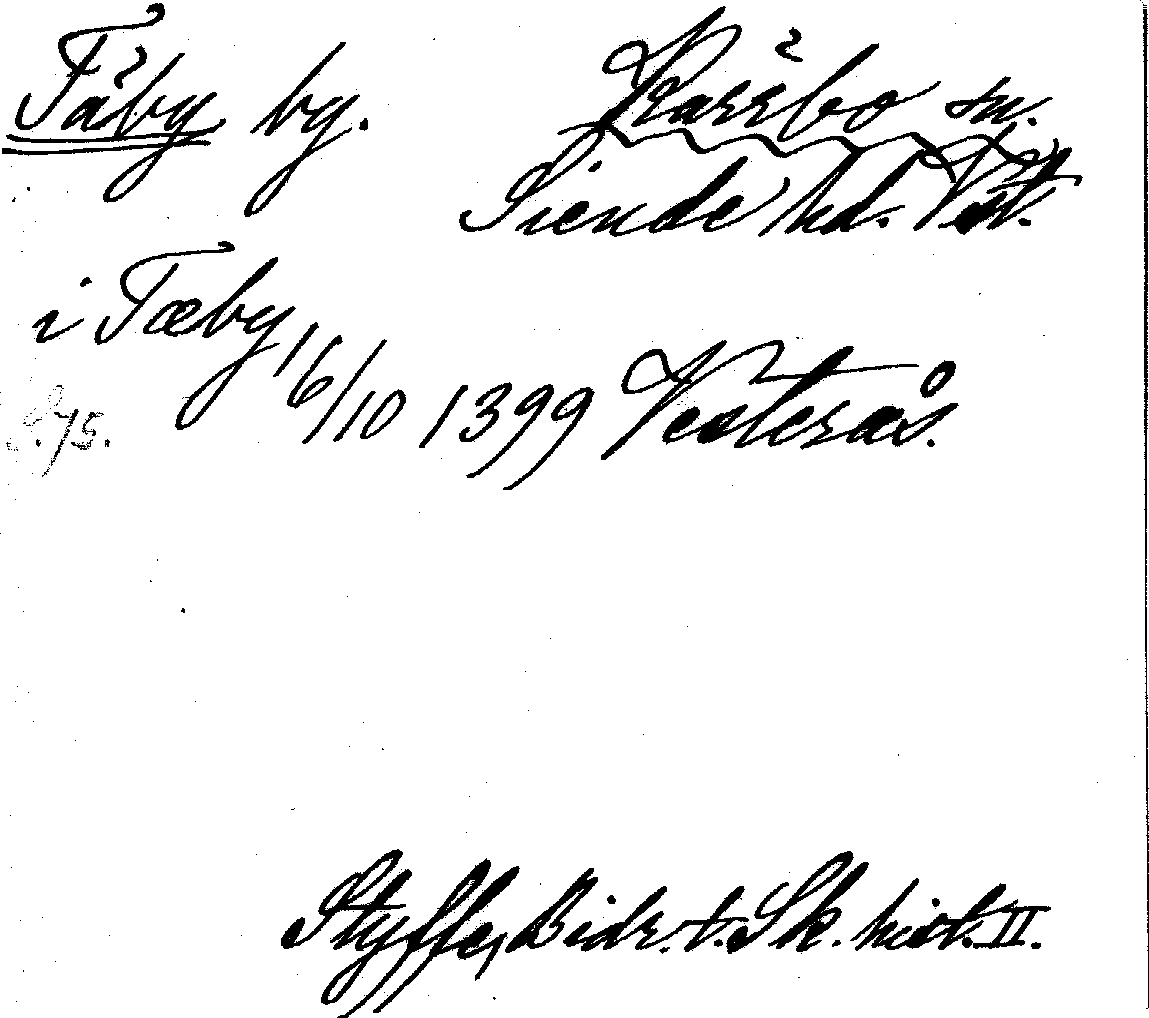 Täby by. Kärrbo sn.
Siende hd. Vstm.
i Tæby 16/10 1399 Vesterås.
S. 75.
Styffe, Bidr. t. Sk. hist. II.